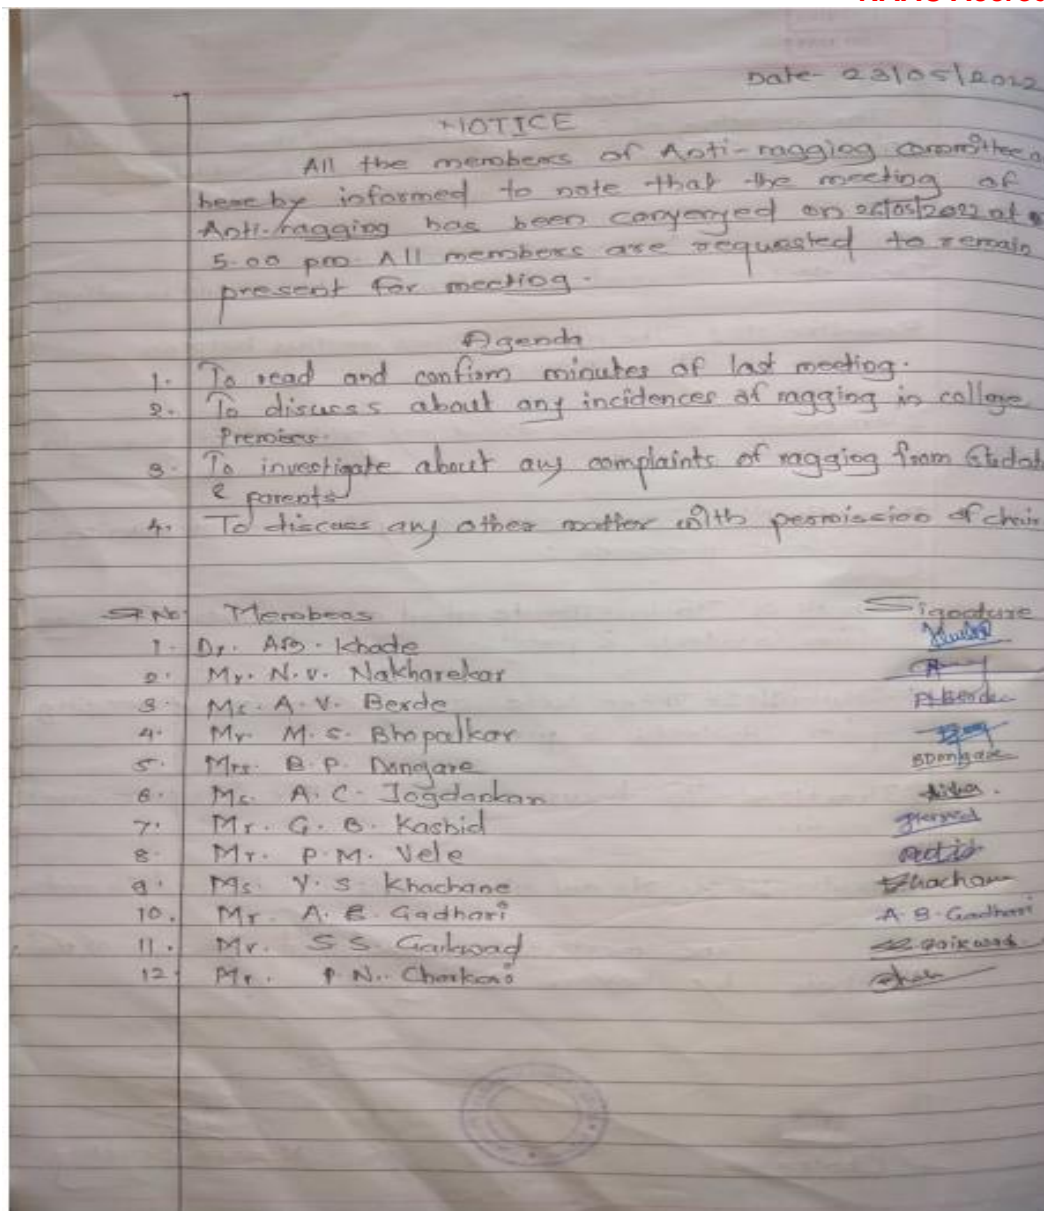 Date- 23/05/2022
NOTICE
All the members of Anti-ragging committee
hereby informed to note that the meeting of
Anti-ragging has been conveyed on 26/05/2022 at
5.00 pm. All members are requested to remain
present for meeting.
Agenda
1. To read and confirm minutes of last meeting.
2. To discuss about any incidences of ragging in college
Premises.
3. To investigate about any complaints of ragging from
& parents
4. To discuss any other matter with permission of chair
Sr No Members Signature
1. Dr. Khade
2. Mr. N. V. Nakharekar
3. A. V. Berde
4. Mr. M. S. Bhopalkar
5. Mrs. B. P. Dongare BDongare
6. A. C.
7. Mr. G. B. Kashid
8. Mr. P. M. Vele
9. Ms. Y. S. Khachane
10. Mr. A. B. Gadhari A. B. Gadhari
11. Mr. S S. Gaikwad Gaikwad
12 Mr. P. N.